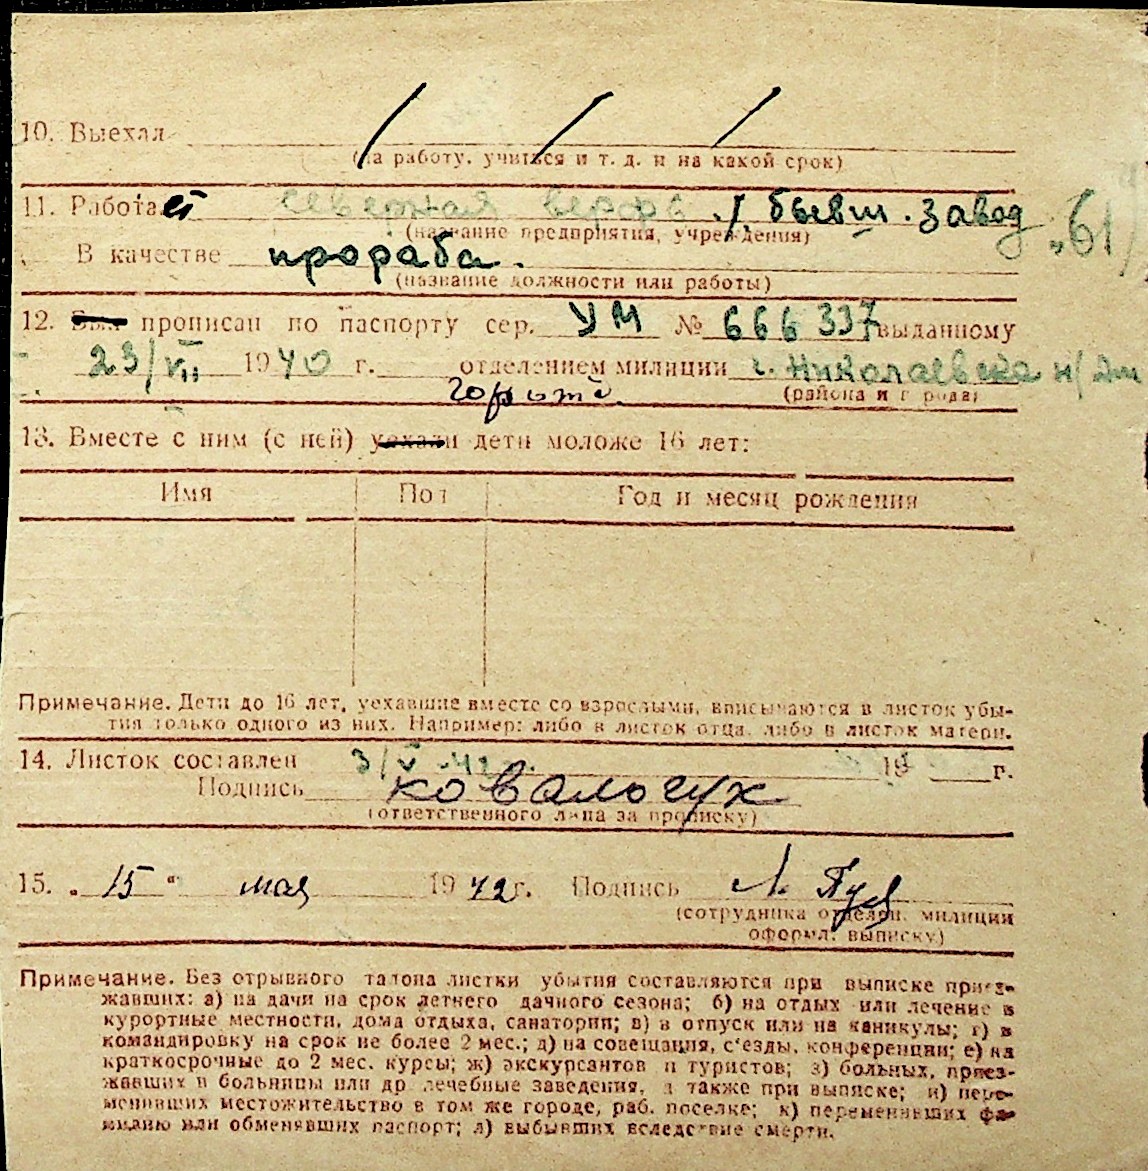 10. Выехал / / /
(на работу, учиться и т. д. и на какой срок)
11. Работает северная верфь ./. бывш. завод „61/
(название предприятия, учреждения)
В качестве прораба.
(название должности или работы)
12. Был прописан по паспорту сер. УМ № 666337 выданному
23/VII 1940 г. отделением милиции г. Николаевска н/Ам
(района и города)
13. Вместе с ним (с ней) уехали дети моложе 16 лет:
Имя Пол Год и месяц рождения
Примечание. Дети до 16 лет, уехавшие вместе со взрослыми, вписываются в листок убы-
тия только одного из них. Например: либо в листок отца, либо в листок матери.
14. Листок составлен 3/V 42 г. 19 г.
Подпись
(ответственного лица за прописку)
15. „15“ мая 1942 г. Подпись
(сотрудника отделен. милиции
оформл. выписку)
Примечание. Без отрывного талона листки убытия составляются при выписке приез-
жавших: а) на дачи на срок летнего дачного сезона; б) на отдых или лечение в
курортные местности, дома отдыха, санатории; в) в отпуск или на каникулы; г) в
командировку на срок не более 2 мес.; д) на совещания, с'езды, конференции; е) на
краткосрочные до 2 мес. курсы; ж) экскурсантов и туристов; з) больных, приез-
жавших в больницы или др. лечебные заведения, а также при выписке; и) пере-
менивших местожительство в том же городе, раб. поселке; к) переменивших фа-
милию или обменявших паспорт; л) выбывших вследствие смерти.